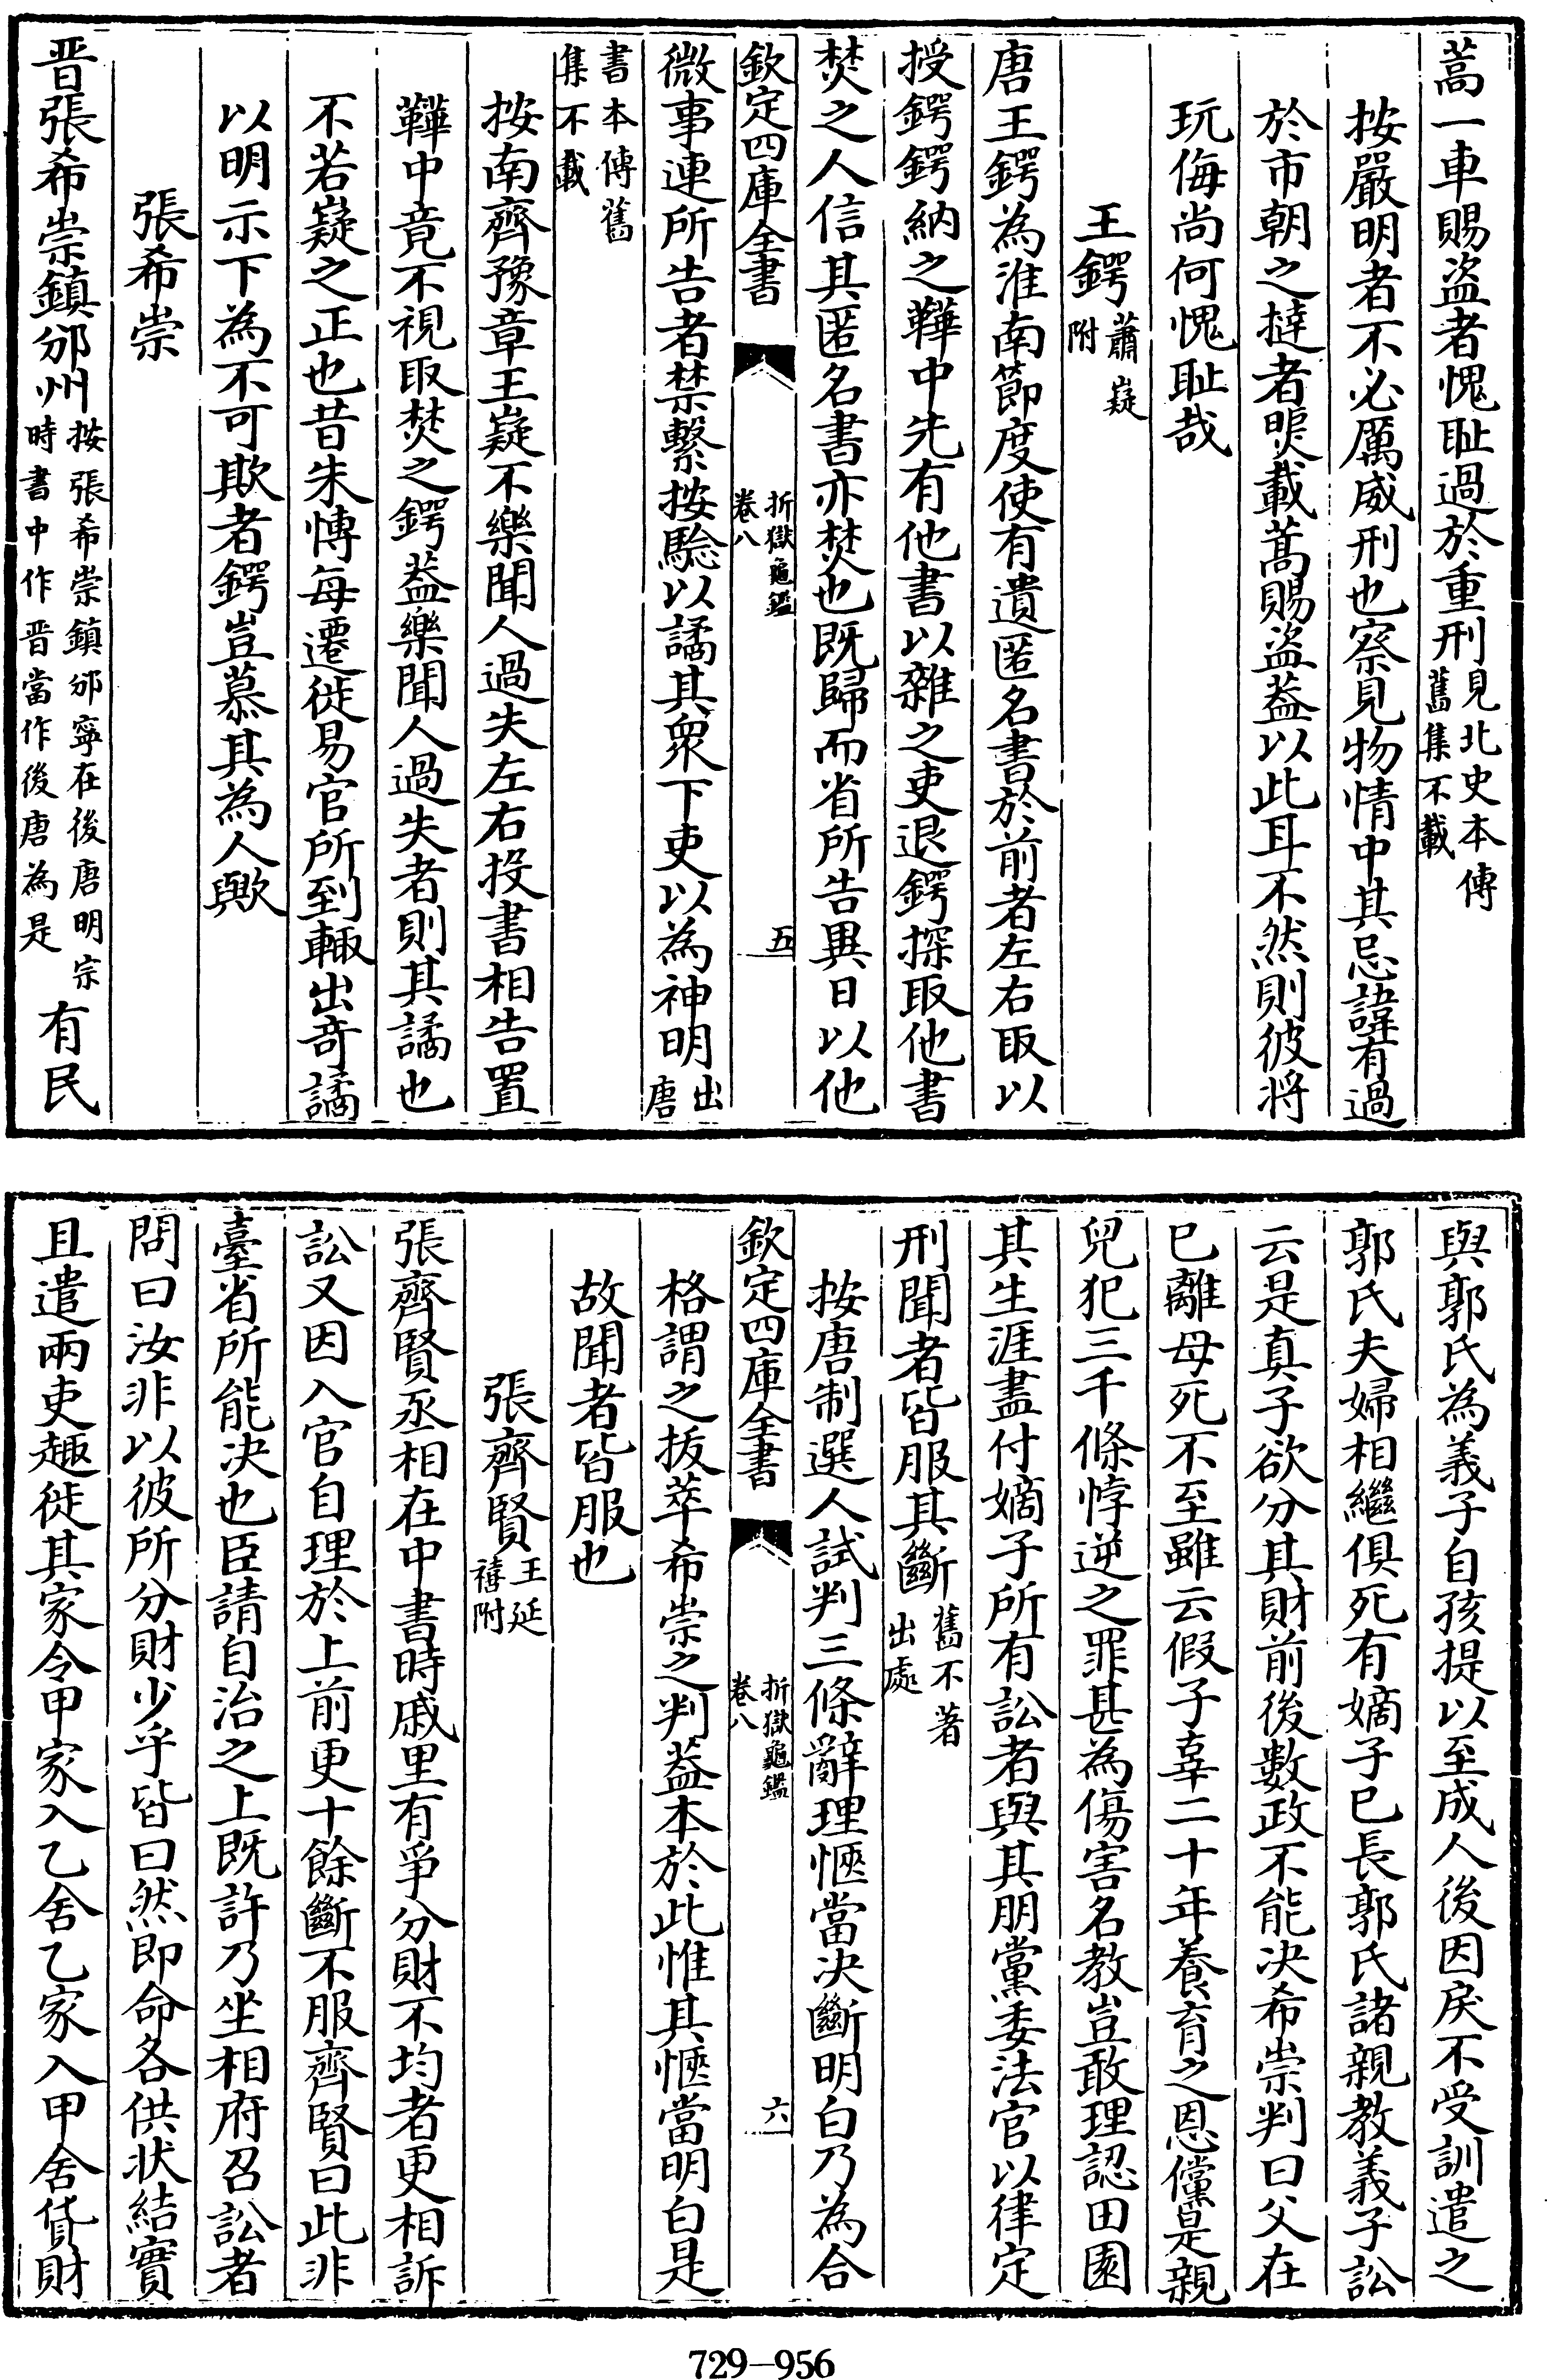 蒿一車賜盗者愧耻過於重刑見北史本傳舊集不載
按嚴明者不必厲威刑也察見物情中其忌諱有過
於市朝之撻者㷼載蒿賜盗葢以此耳不然則彼将
玩侮尚何愧耻哉
王鍔蕭嶷附
唐王鍔為淮南節度使有遺匿名書於前者左右取以
授鍔鍔納之鞾中先有他書以雜之吏退鍔探取他書
焚之人信其匿名書亦焚也既歸而省所告異日以他
欽定四庫全書
折獄龜鑑
卷八
五
微事連所告者禁繫按驗以譎其衆下吏以為神明出唐
書本傳舊集不載
按南齊豫章王嶷不樂聞人過失左右投書相告置
鞾中竟不視取焚之鍔葢樂聞人過失者則其譎也
不若嶷之正也昔朱博每遷徙易官所到輙出奇譎
以明示下為不可欺者鍔豈慕其為人歟
張希崇
晋張希崇鎮邠州按張希崇鎮邠寧在後唐明宗時書中作晋當作後唐為是有民
與郭氏為義子自孩提以至成人後因戾不受訓遣之
郭氏夫婦相繼俱死有嫡子已長郭氏諸親教義子訟
云是真子欲分其財前後數政不能决希崇判曰父在
已離母死不至雖云假子辜二十年養育之恩儻是親
兒犯三千條悖逆之罪甚為傷害名教豈敢理認田園
其生涯盡付嫡子所有訟者與其朋黨委法官以律定
刑聞者皆服其斷舊不著出處
按唐制選人試判三條辭理愜當决斷明白乃為合
欽定四庫全書
折獄龜鑑
卷八
六
格謂之拔萃希崇之判葢本於此惟其愜當明白是
故聞者皆服也
張齊賢王延禧附
張齊賢丞相在中書時戚里有爭分財不均者更相訴
訟又因入官自理於上前更十餘斷不服齊賢曰此非
臺省所能决也臣請自治之上既許乃坐相府召訟者
問曰汝非以彼所分財少乎皆曰然即命各供状結實
且遣兩吏趣徙其家令甲家入乙舍乙家入甲舍貨財
729—956